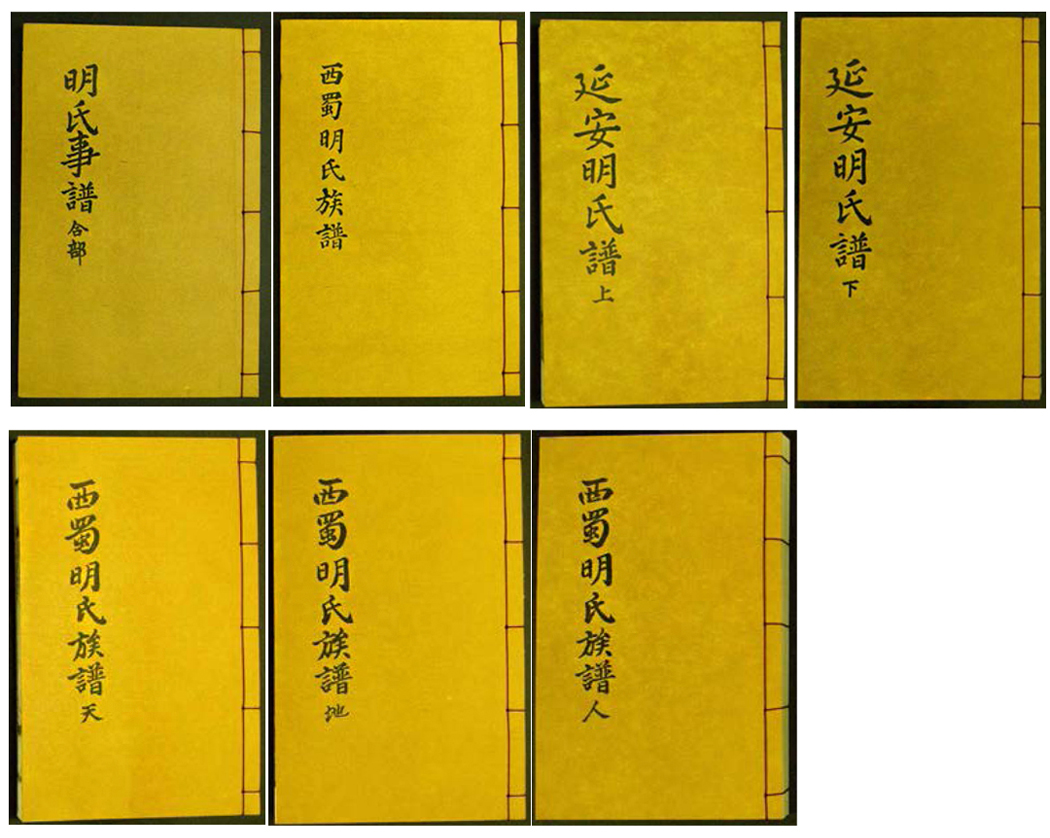 明氏事譜 合部
西蜀明氏族譜
延安明氏譜 上
延安明氏譜 下
西蜀明氏族譜 天
西蜀明氏族譜 地
西蜀明氏族譜 人